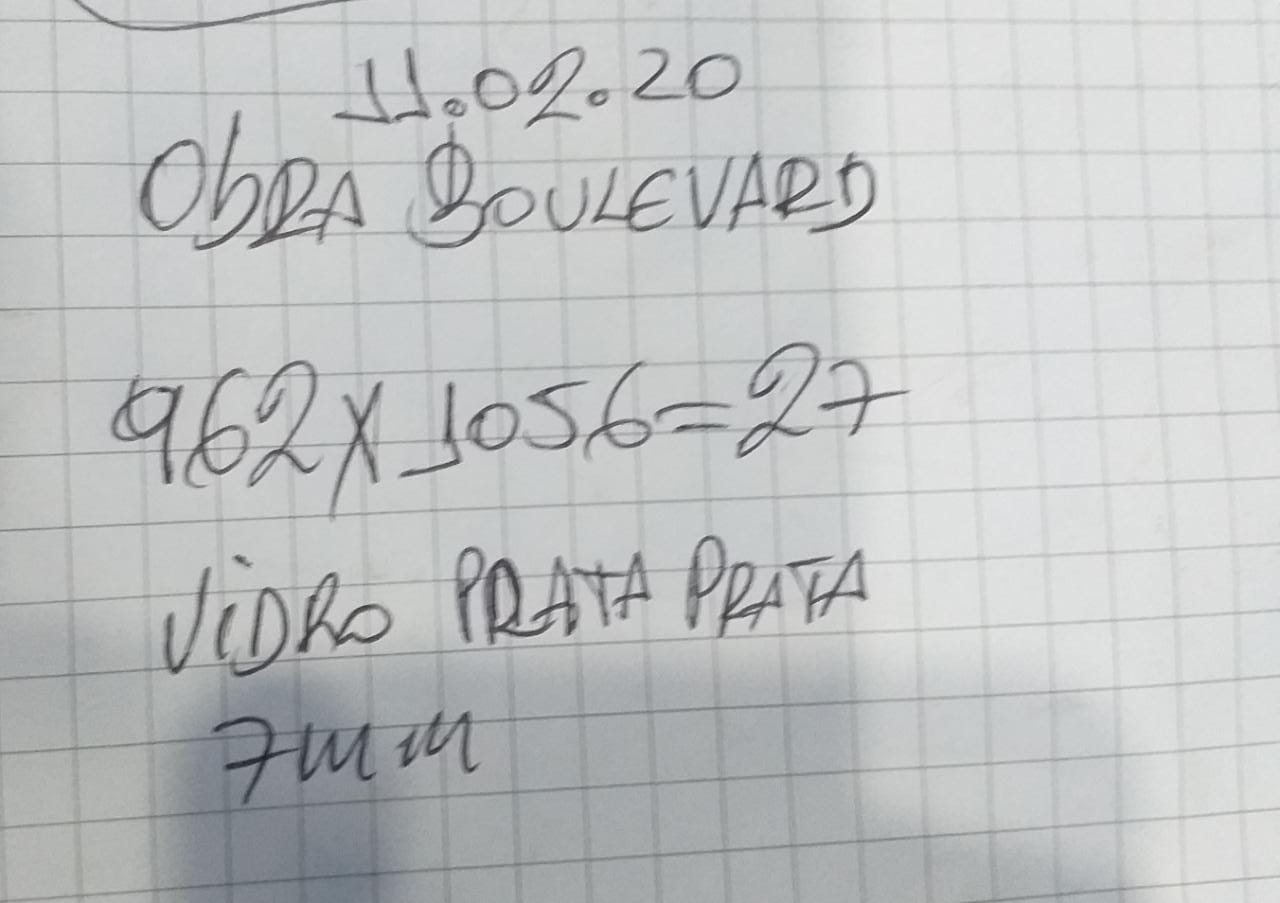 11.02.20
ObRA BOULEVARD
962X1056=27
ViDRo PRATA PRATA
7mm